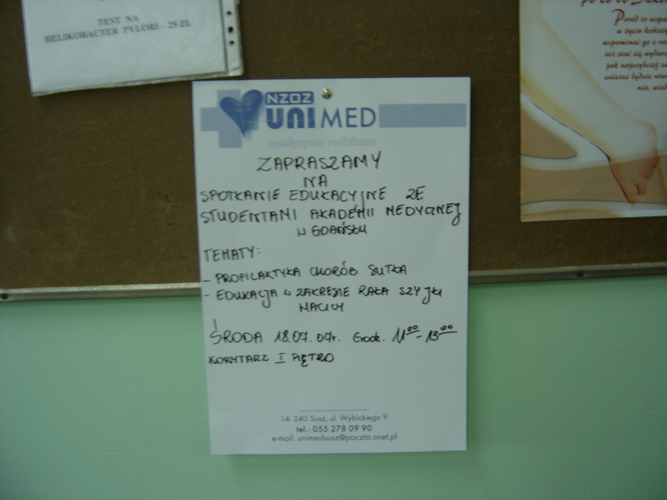 TEST NA
HELIKOBACTER PYLORI - 25 ZŁ
NZOZ
UNIMED
medycyna rodzinna
ZAPRASZAMY
NA
SPOTKANIE EDUKACYJNE ZE
STUDENTAMI AKADEMII MEDYCZNEJ
W GDAŃSKU
TEMATY:
- PROFILAKTYKA CHORÓB SUTKA
- EDUKACJA W ZAKRESIE RAKA SZYJKI
MACICY
ŚRODA 18.07.07r. Godz. 11⁰⁰ - 13⁰⁰
KORYTARZ I PIĘTRO
14-240 Susz, ul. Wybickiego 9
tel.: 055 278 09 90
e-mail: unimedsusz@poczta.onet.pl
Poród to
w życiu kobiety
wspominać go z
też stać się
jak najszybciej
będzie